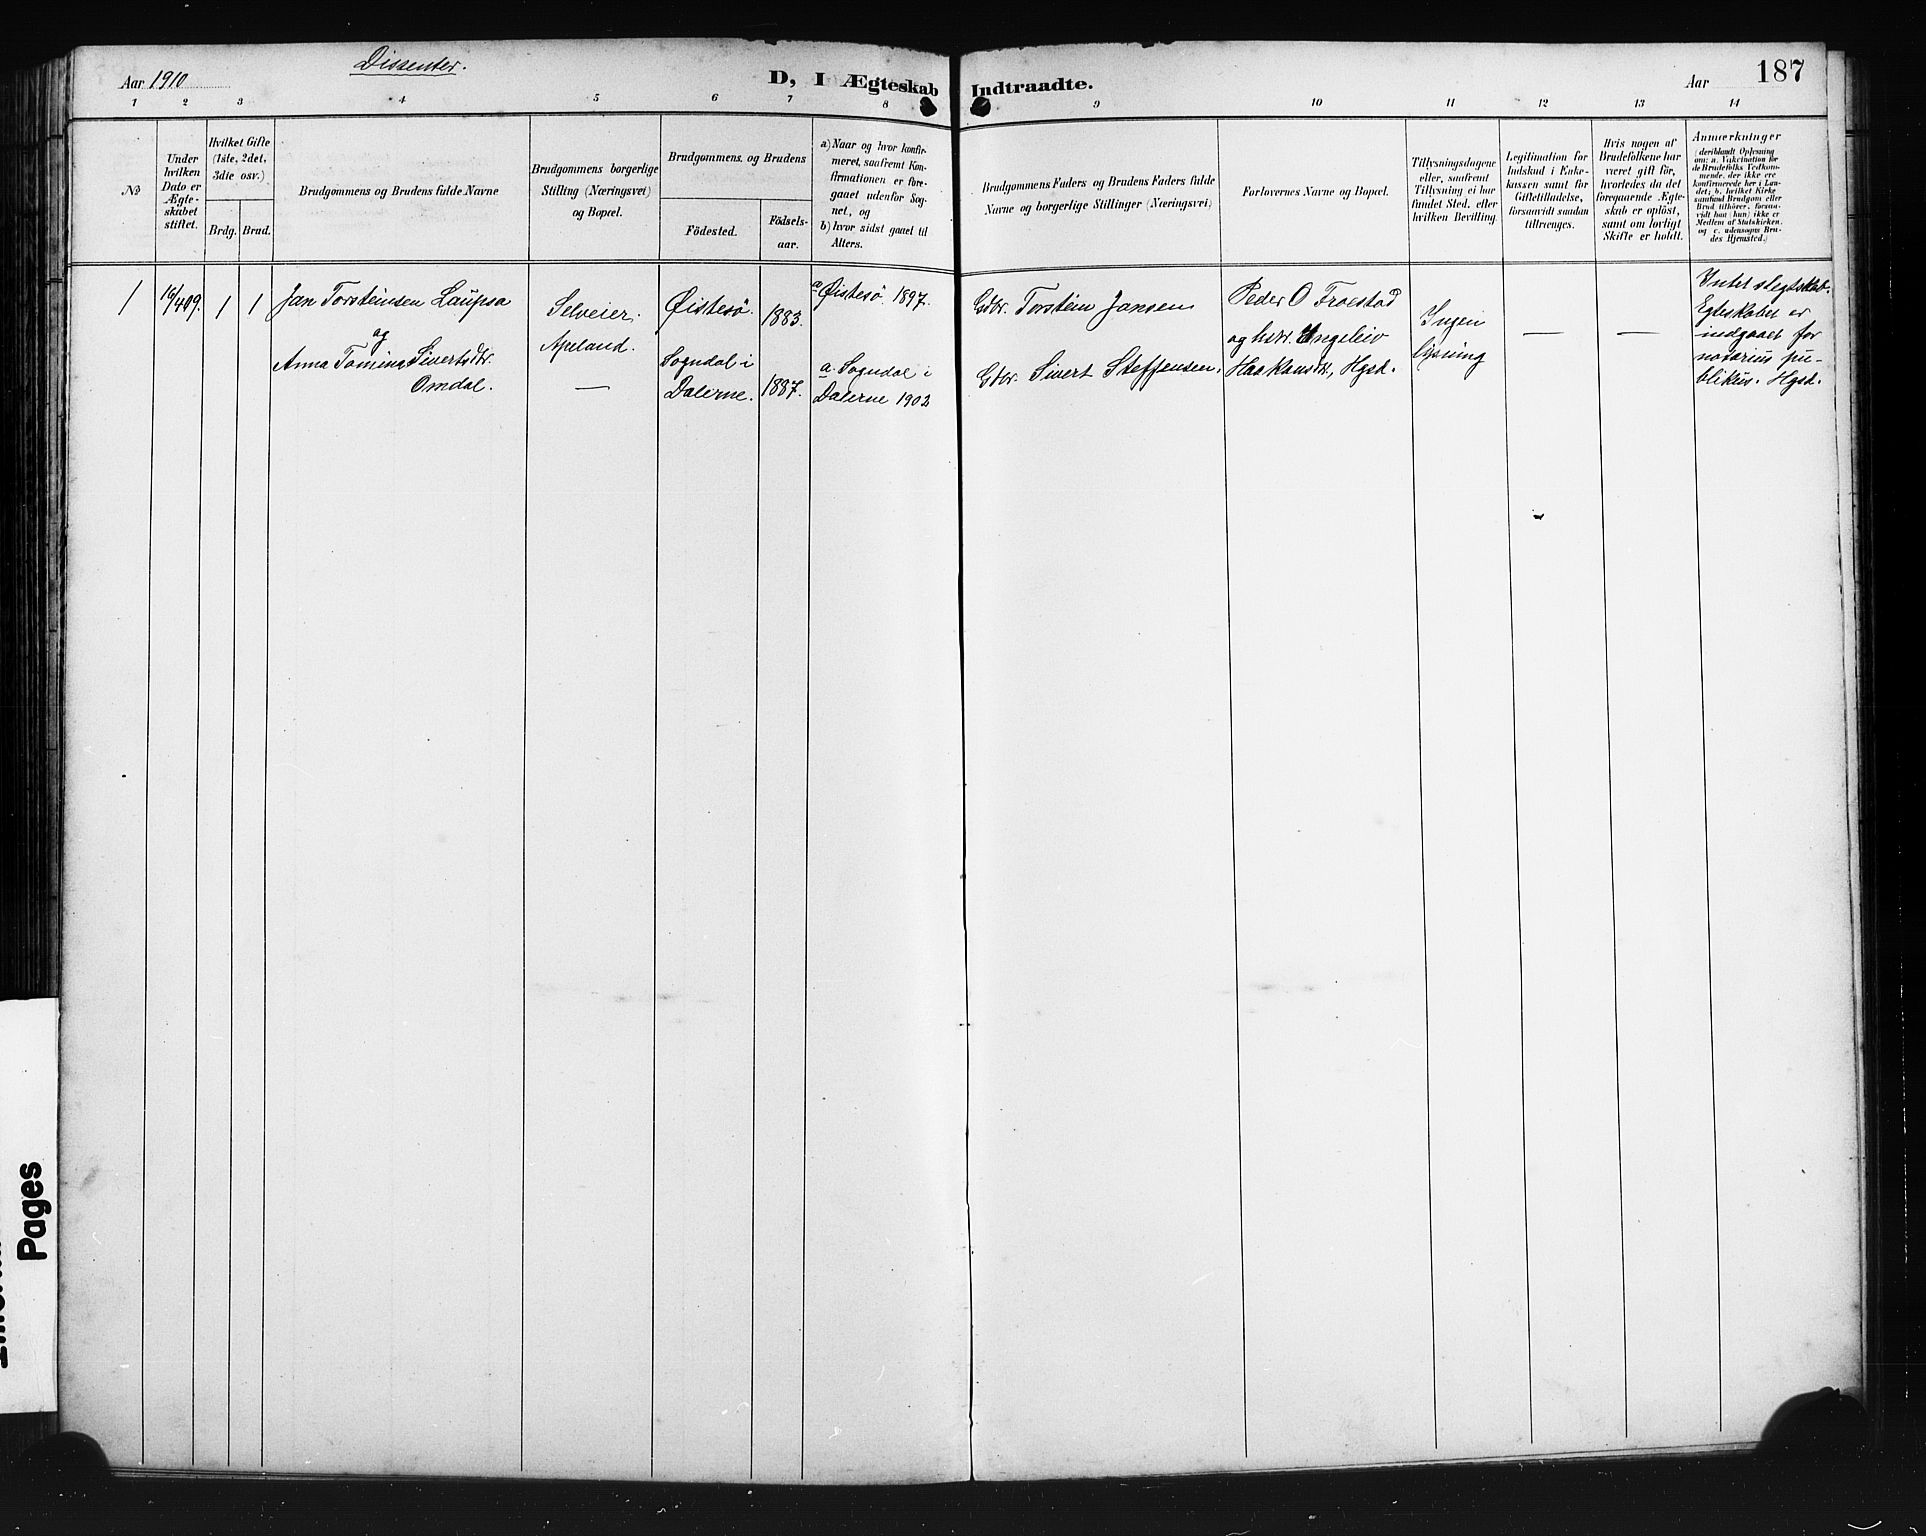 Dissenter.
Aar 1910
D, I Ægteskab Indtraadte.
Aar
187
1 2 3 4 5 6 7 8 9 10 11 12 13 14
№
Under
hvilken
Dato er
Ægte-
skabet
stiftet.
Hvilket Gifte
(1ste, 2det,
3die osv.)
Brdg.
Brud.
Brudgommens og Brudens fulde Navne
Brudgommens borgerlige
Stilling (Næringsvei)
og Bopæl.
Brudgommens og Brudens
Födested.
Födsels-
aar.
a) Naar og hvor konfir-
meret, saafremt Kon-
firmationen er fore-
gaaet udenfor Sog-
net, og
b) hvor sidst gaaet til
Alters.
Brudgommens Faders og Brudens Faders fulde
Navne og borgerlige Stillinger (Næringsvei)
Forlovernes Navne og Bopæl.
Tillysningsdagene
eller, saafremt
Tillysning ei har
fundet Sted, efter
hvilken Bevilling.
Legitimation for
Indskud i Enke-
kassen samt for
Giftetilladelse,
forsaavidt saadan
tiltrænges.
Hvis nogen af
Brudefolkene har
været gift før,
hvorledes da det
foregaaende Ægte-
skab er opløst,
samt om lovligt
Skifte er holdt.
Anmærkninger
(deriblandt Oplysning
om: a. Vakcination for
de Brudefolks Vedkom-
mende, der ikke ere
konfirmerede her i Lan-
det; b. hvilket Kirke
samfund Brudgom eller
Brud tilhører, forsaa-
vidt han (hun) ikke er
Medlem af Statskirken,
og c. udensogns Bru-
des Hjemsted.)
1
16/4 09.
1
1
Jan Torsteinsen Laupsa
og
Anna Tomina Sivertsdtr.
Omdal.
Selveier.
Apeland.
—
Øistesö.
Sogndal i
Dalerne.
1883.
1887.
a Øistesö. 1897.
a. Sogndal i
Dalerne 1902
Gdbr. Torstein Jansen
Gdbr. Sivert Steffensen.
Peder O Froestad
og hstr. Ingeleiv
Haakonsdtr., Hgsd.
Ingen
lysning
—
—
Intet slegtskab.
Egteskabet er
indgaaet for
notarius pu-
blikus. Hgsd.
Pages